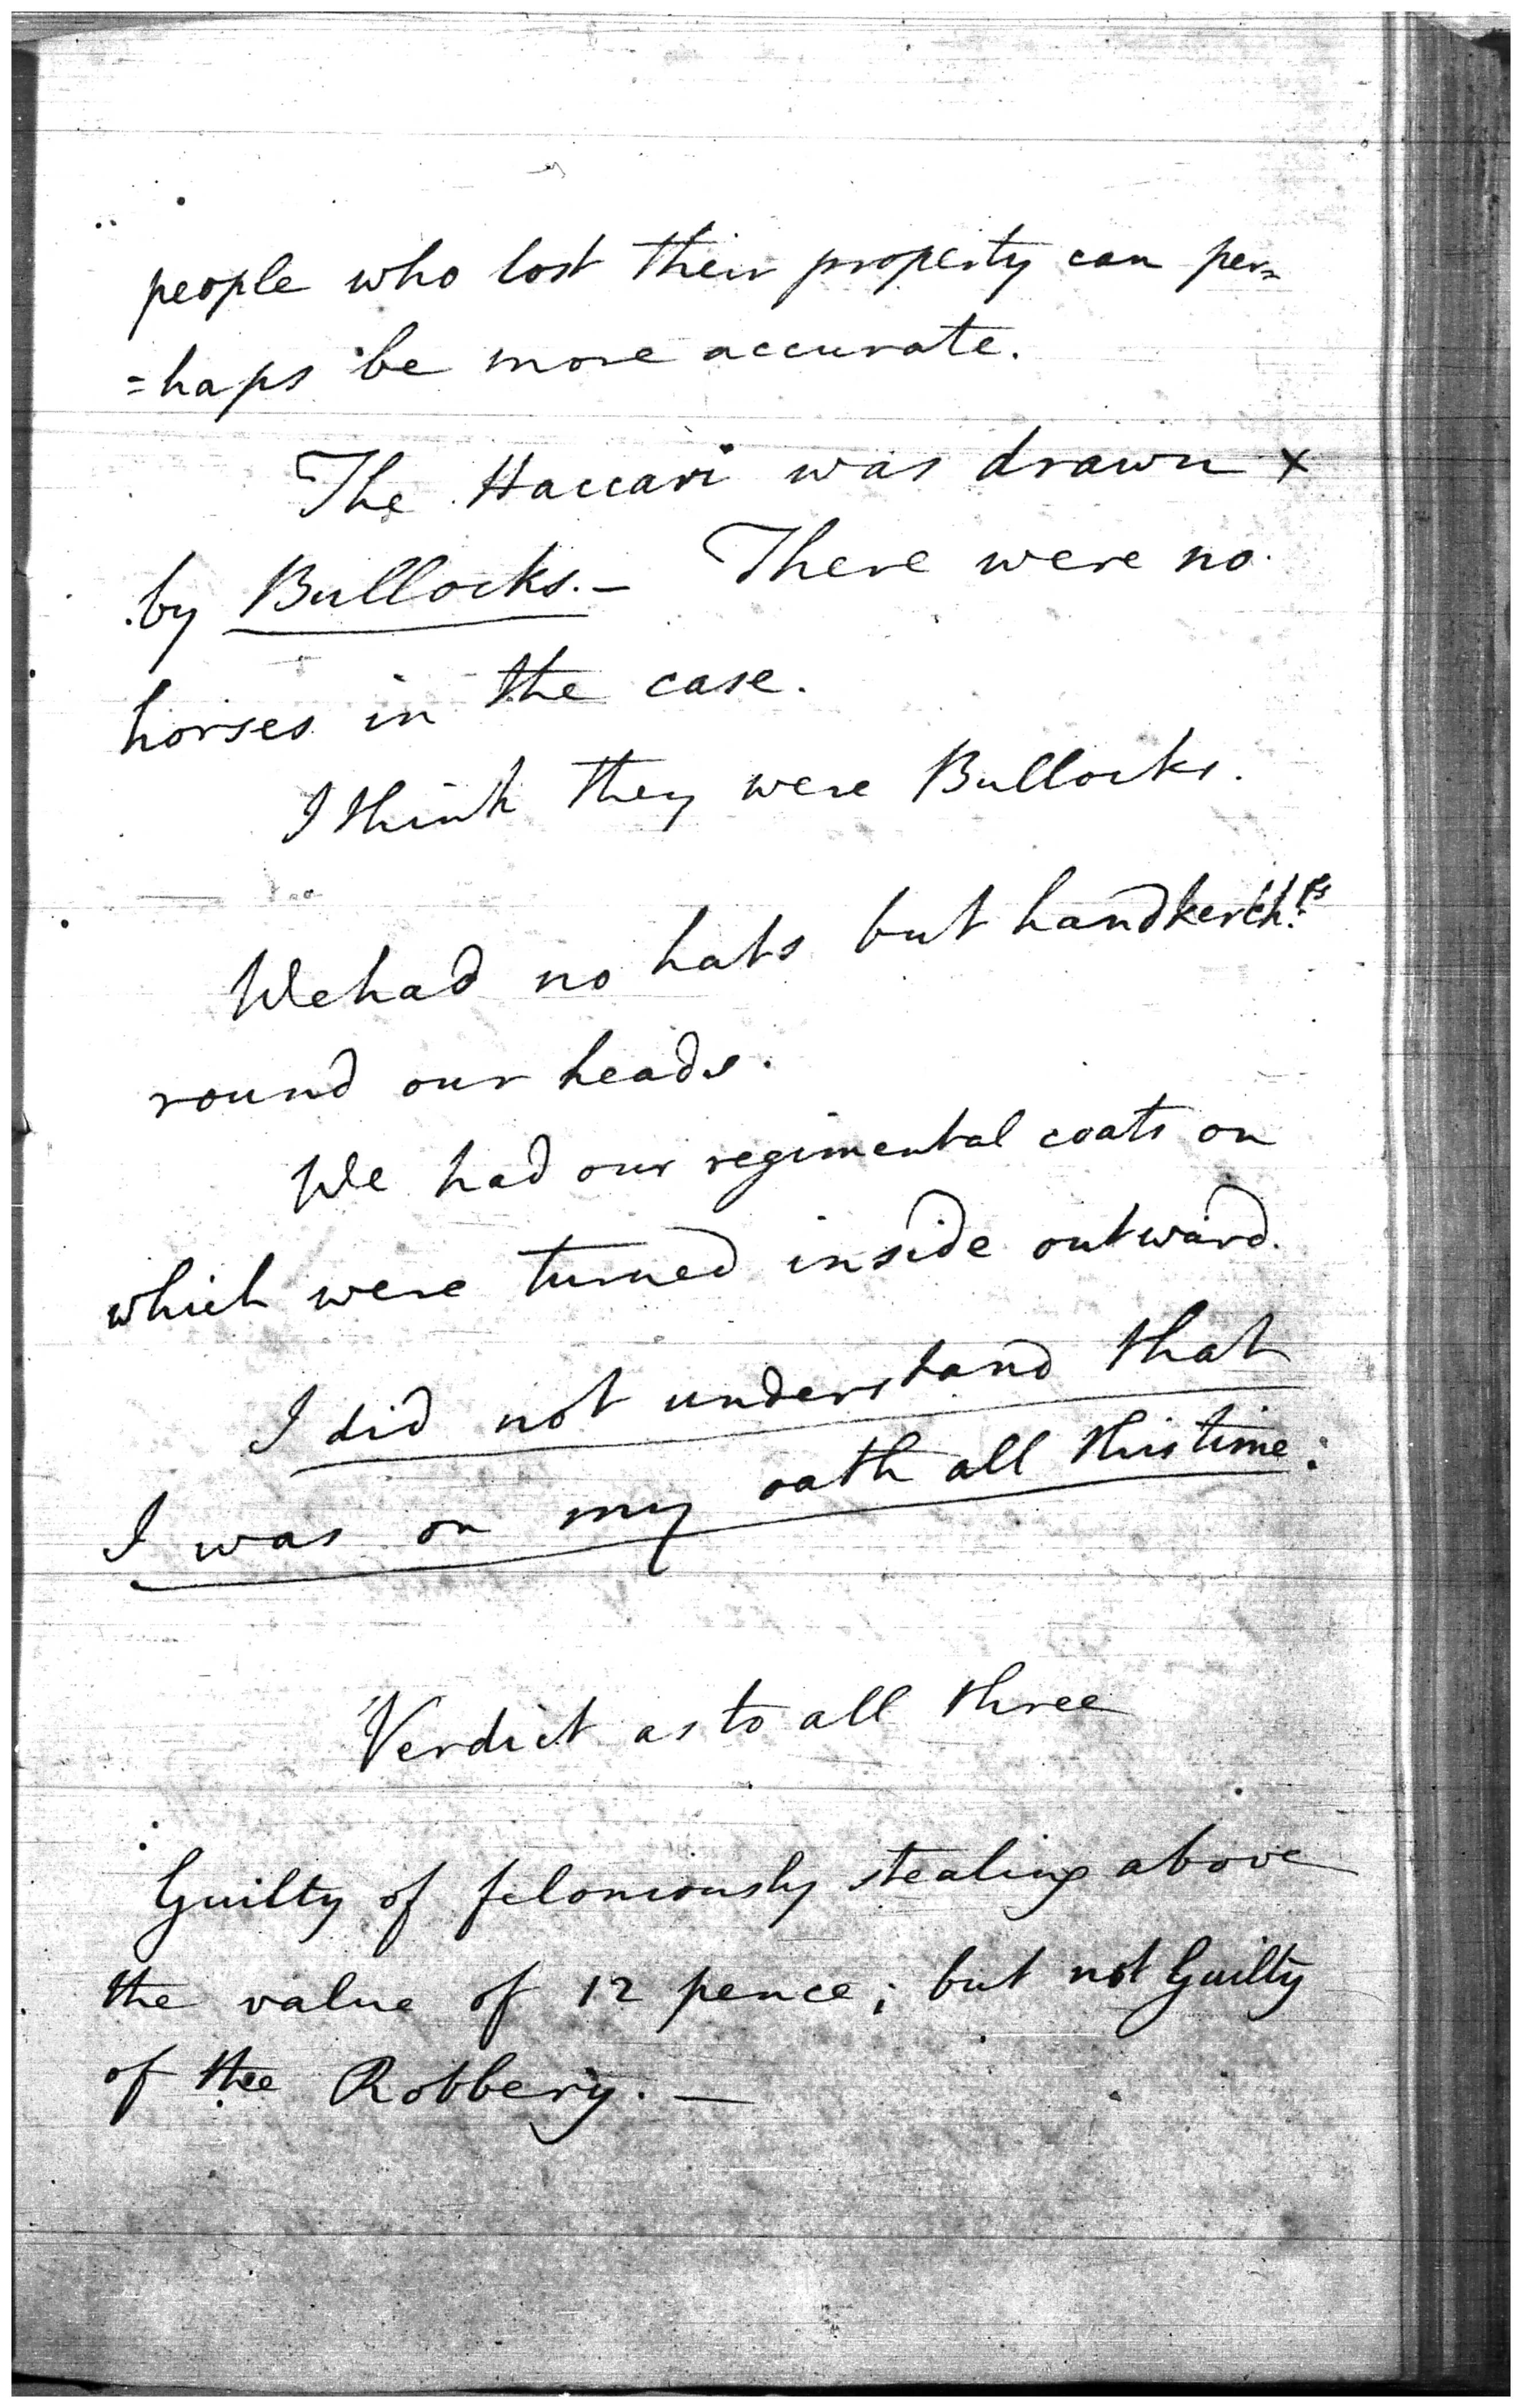 people who lost their property can per=
=haps be more accurate.
The Haccari was drawn x
by Bullocks.– There were no
horses in the case.
I think they were Bullocks.
We had no hats but handkerch:fs
round our heads.
We had our regimental coats on
which were turned inside outward.
I did not understand that
I was on my oath all this time:
Verdict as to all three
Guilty of feloniously stealing above
the value of 12 pence; but not Guilty
of the Robbery. —